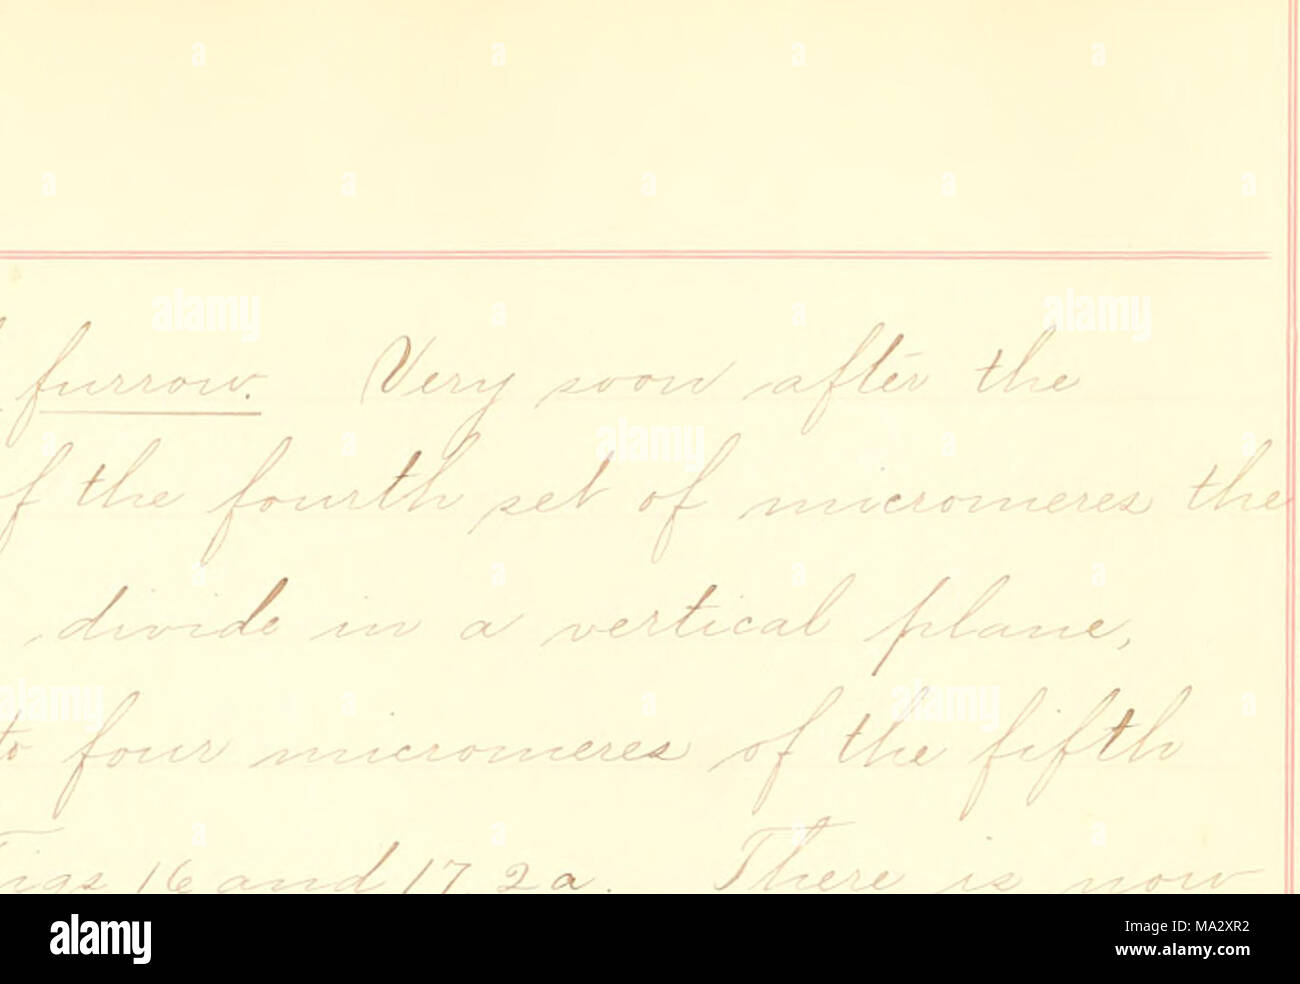 furrow. Very soon after the
of the fourth set of micromeres the
divide in a vertical plane,
to four micromeres of the fifth
Figs 16 and 17, 2a. There is now
alamy
Image ID: MA2XR2
www.alamy.com